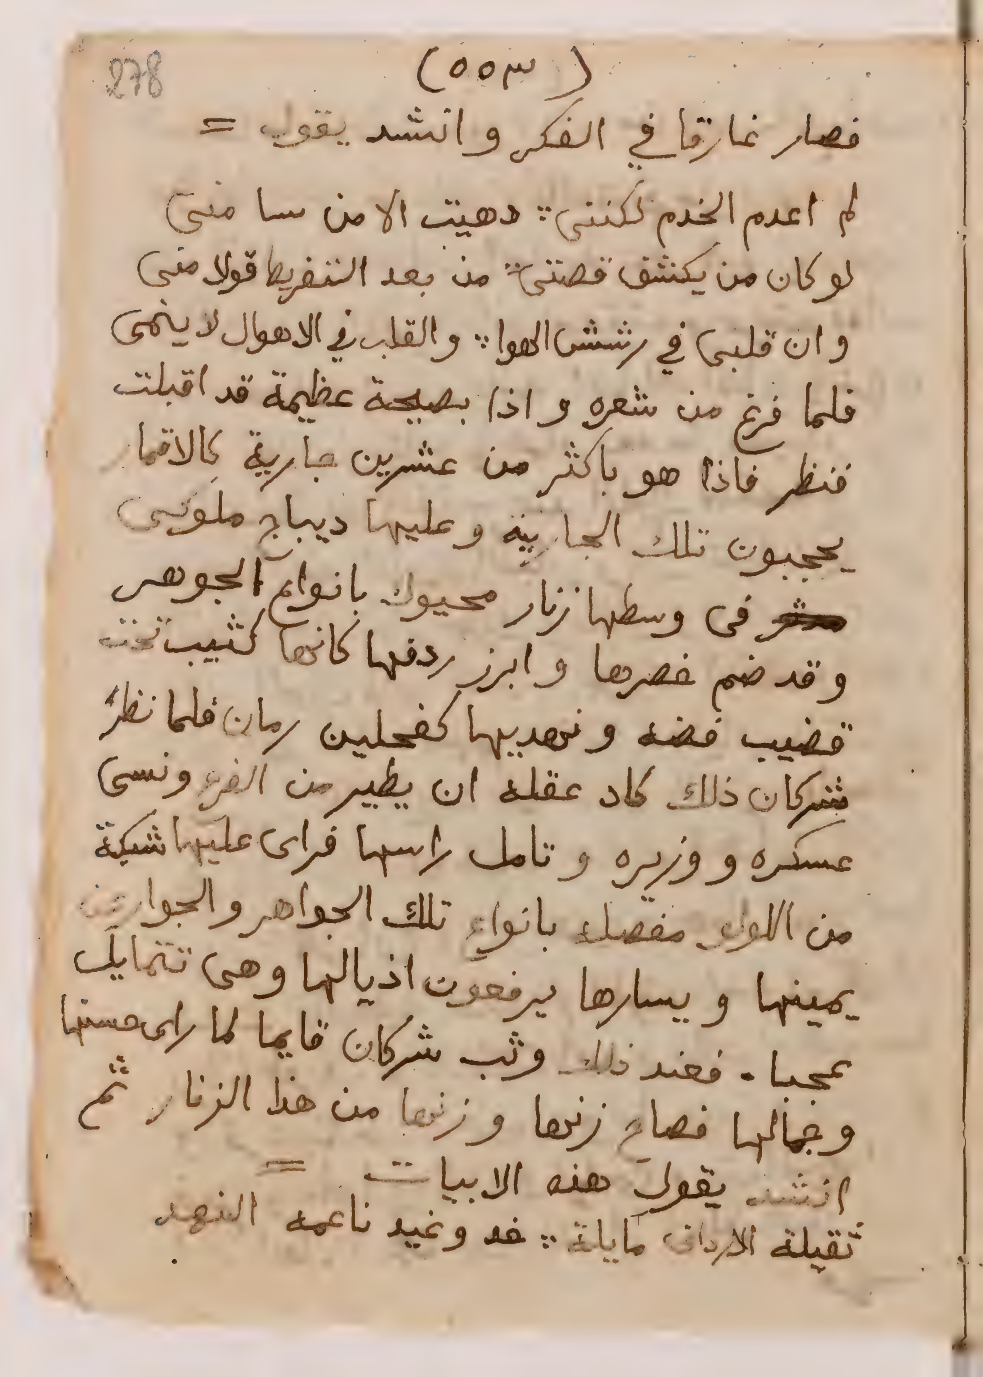 278
(٥٥٣)
فصار غارقا في الفكر وانشد يقول =
لم اعدم الخدم لكننى ⁘ دهيت الامن سا منى
لو كان من يكشف قصتى ⁘ من بعد التفريط قولا منى
وان قلبى في الهوا ⁘ والقلب في الاهوال لا ينمى
فلما فرغ من شعره واذا بصيحة عظيمة قد اقبلت
فنظر فاذا هو باكثر من عشرين جارية كالاقمار
يحجبون تلك الجارية وعليها ديباج ملوكى
فى وسطها زنار محبوك بانواع الجوهر
وقد ضم خصرها وابرز ردفها كانها كثيب تحت
قضيب فضه ونهديها كفحلين رمان فلما نظر
شركان ذلك كاد عقله ان يطير من الفرع ونسى
عسكره ووزيره وتامل راسها فراى عليها شبكة
من اللولو مفصله بانواع تلك الجواهر والجوار عن
يمينها ويسارها يرفعون اذيالها وهى تتمايل
عجبا . فعند ذلك وثب شركان قايما لما راى حسنها
وجمالها فصاح زنها وزنها من هذا الزنار ثم
انشد يقول هذه الابيات =
ثقيلة الارداف مايلة ⁘ خد وغيد ناعمه النهد